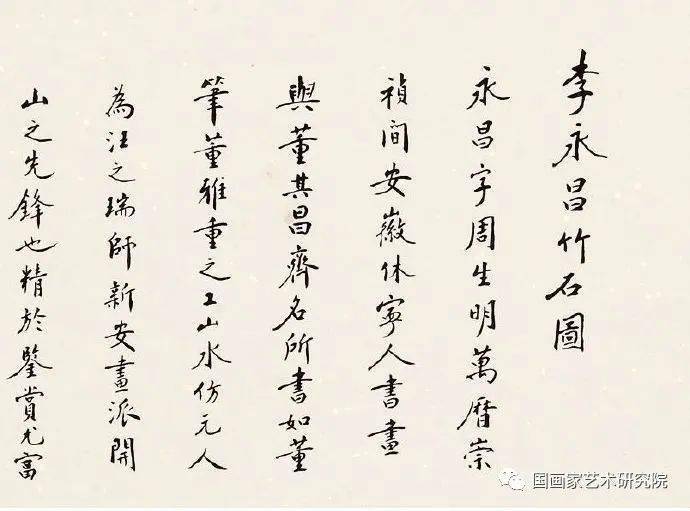 李永昌竹石圖
永昌字周生明萬曆崇
禎间安徽休寧人書畫
與董其昌齊名所書如董
筆董雅重之工山水仿元人
為汪之瑞師新安畫派開
山之先鋒也精於鑒賞尤富
国画家艺术研究院